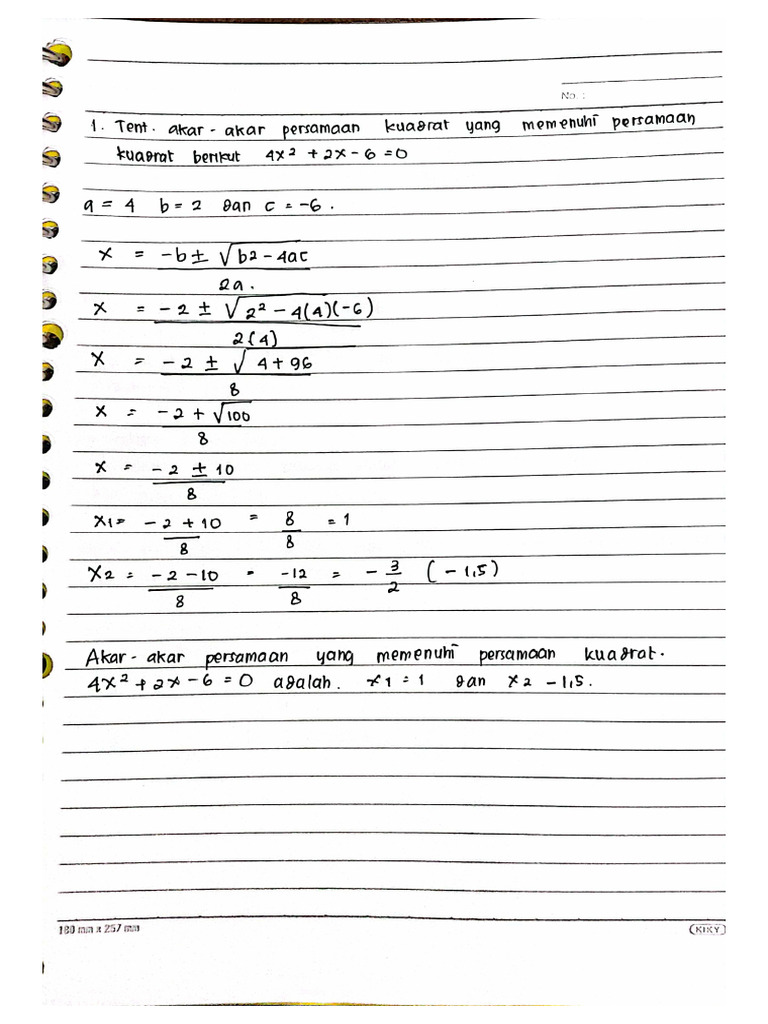 No. :
1. Tent. akar - akar persamaan kuadrat yang memenuhi persamaan
kuadrat berikut 4x² + 2x - 6 = 0
a = 4 b = 2 dan c = -6.
x = -b ± √b2 - 4ac
2a.
x = -2 ± √2² - 4(4)(-6)
2(4)
x = -2 ± √4 + 96
8
x = -2 + √100
8
x = -2 ± 10
8
x1 = -2 + 10 = 8 = 1
8 8
x2 = -2 - 10 = -12 = - 3 (-1,5)
8 8 2
Akar - akar persamaan yang memenuhi persamaan kuadrat.
4x² + 2x - 6 = 0 adalah. x1 = 1 dan x2 -1,5.
180 mm x 257 mm KIKY